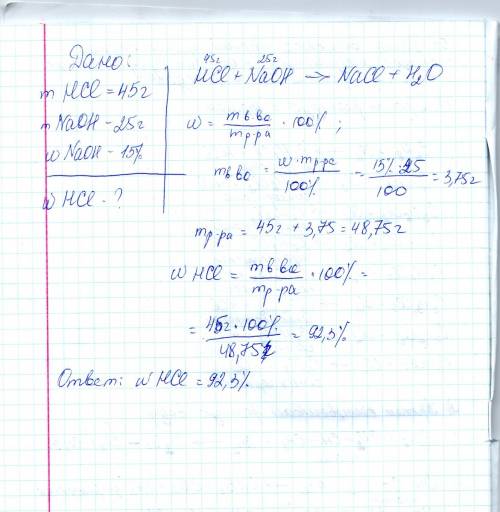 Дано:
m HCl = 45г
m NaOH - 25г
w NaOH - 15%
w HCl - ?
45г 25г
HCl + NaOH → NaCl + H₂O
w = m в-ва / m р-ра · 100% ;
m в-ва = w · m р-ра / 100% = 15% · 25 / 100 = 3,75г
m р-ра = 45г + 3,75 = 48,75г
w HCl = m в-ва / m р-ра · 100% =
= 45г · 100% / 48,75г = 92,3%
Ответ: w HCl = 92,3%